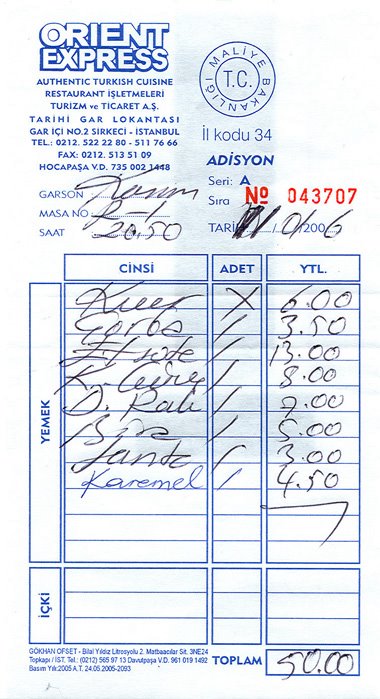 ORIENT
EXPRESS
AUTHENTIC TURKISH CUISINE
RESTAURANT İŞLETMELERİ
TURİZM ve TİCARET A.Ş.
TARİHİ GAR LOKANTASI
GAR İÇİ NO.2 SIRKECI - İSTANBUL
TEL.: 0212. 522 22 80 - 511 76 66
FAX: 0212. 513 51 09
HOCAPAŞA V.D. 735 002 1448
MALİYE BAKANLIĞI
T.C.
İl kodu 34
ADİSYON
Seri: A
Sıra No 043707
GARSON
MASA NO
SAAT 20.50
TARİH / 01 / 2006
CİNSİ ADET YTL.
YEMEK
Kuver X 6.00
Çorba / 3.50
Et sote / 13.00
/ 8.00
D. Rakı / 7.00
Bira / 5.00
Fanta / 3.00
Karemel / 4.50
İÇKİ
GÖKHAN OFSET - Bilal Yıldız Litrosyolu 2. Matbaacılar Sit. 3NE24
Topkapı / İST. Tel.: (0212) 565 97 13 Davutpaşa V.D. 961 019 1492
Basım Yılı:2005 A.T. 24.05.2005-2093
TOPLAM 50.00